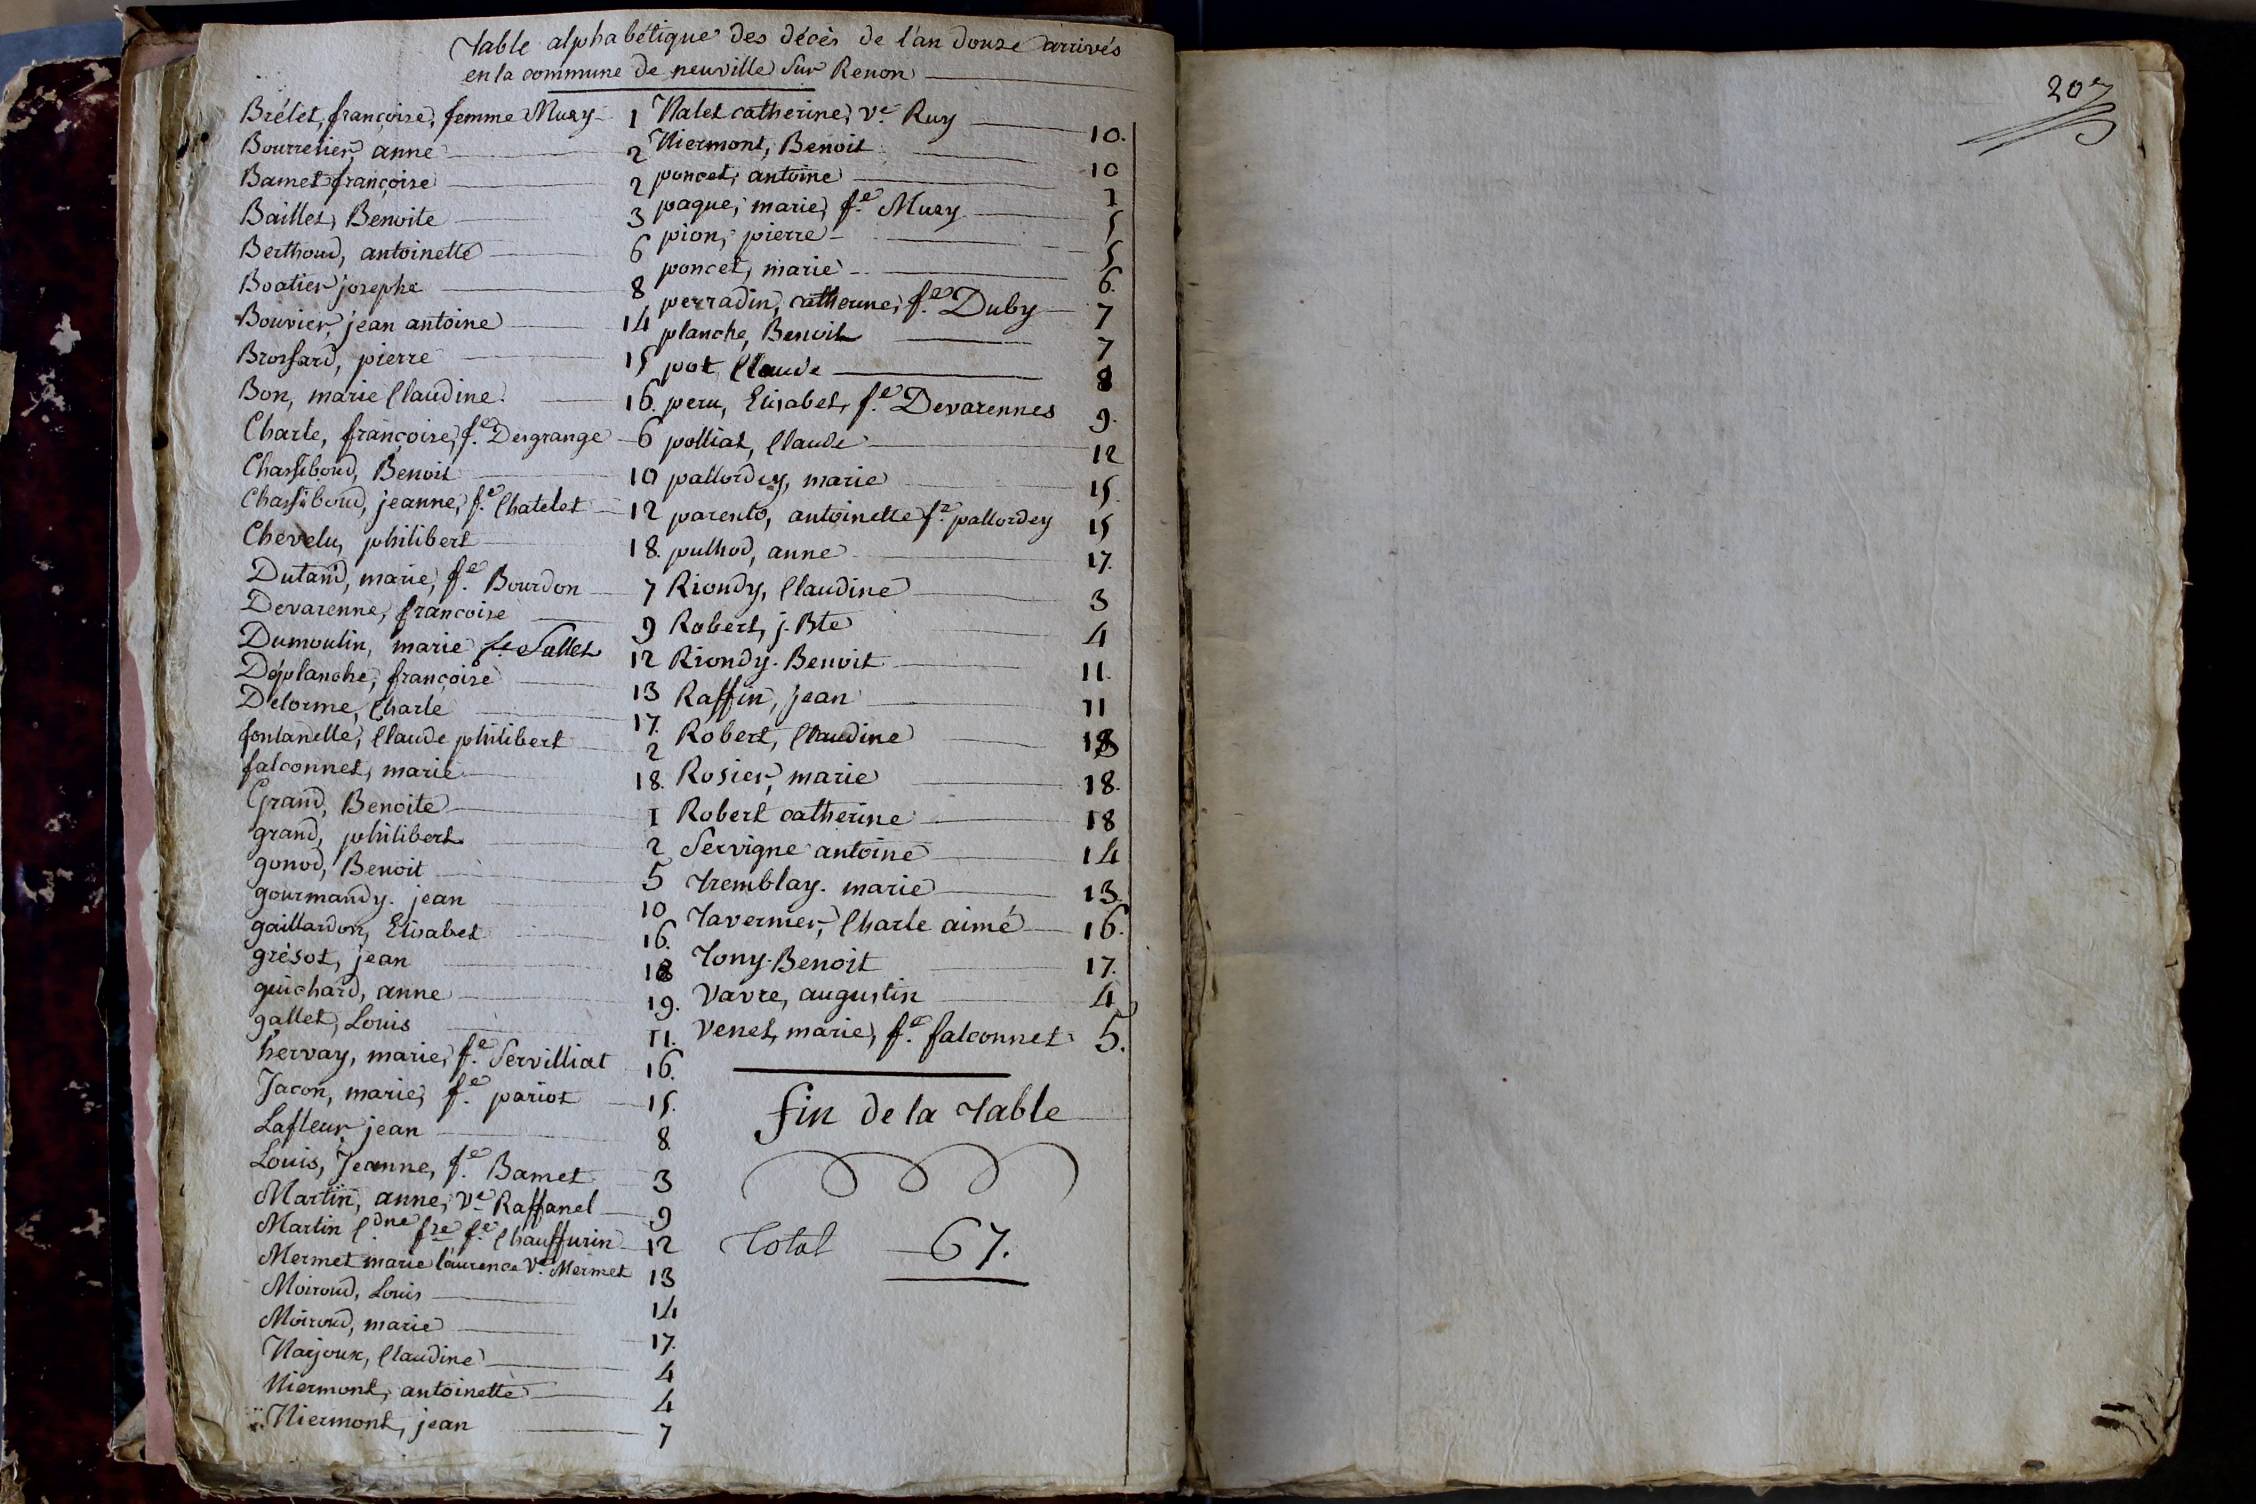 Table alphabétique des décès de l'an douze arrivés
en la commune de neuville sur Renon
Brélet, françoise, femme Muzy 1
Bourrelier, anne 2
Bamet françoise 2
Baillet, Benoite 3
Berthoud, antoinette 6
Boatier josephe 8
Bouvier, jean antoine 14
Brossard, pierre 15
Bon, marie Claudine. 16.
Charle, françoise, f.e Desgrange 6
Chassiboud, Benoit 10
Chassiboud, jeanne, f.e Chatelet 12
Chevelu, philibert 18.
Dutand, marie, f.e Bourdon 7
Devarenne, francoise 9
Dumoulin, marie fe Sallet 12
Déplanche, françoise 13
Delorme, Charle 17.
fontanelle, Claude philibert 2
falconnet, marie 18.
Grand, Benoite 1
grand, philibert 2
gonod, Benoit 5
gourmandy. jean 10
gaillardon, Elisabet 16.
grésot, jean 18
guichard, anne 19.
gallet, Louis 11.
hervay, marie, f.e Servilliat 16.
Jacon, marie, f.e pariot 15.
Lafleur jean 8
Louis, Jeanne, f.e Bamet 3
Martin, anne, V.e Raffanel 9
Martin C.dne fse f.e Chauffurin 12
Mermet marie laurence V.e Mermet 13
Moiroud, Louis 14
Moiroud, marie 17.
Narjoux, Claudine 4
Niermont, antoinette 4
Niermont, jean 7
Nalet catherine, v.e Ruy 10.
Niermont, Benoit 10
poncet, antoine 1
paque, marie, f.e Muzy 5
pion, pierre 5
poncet, marie 6.
perradin, catherine, f.e Duby 7
planche, Benoit 7
pot Claude 8
peru, Elisabet, f.e Devarennes 9.
polliat, Claude 12
pallordey, marie 15.
parento, antoinette f.e pallordey 15
pulhod, anne 17.
Riondy, Claudine 3
Robert, j. Bte 4
Riondy. Benoit 11.
Raffin, jean 11
Robert, Claudine 18
Rosier, marie 18.
Robert catherine 18
Servigne antoine 14
Tremblay. marie 13.
Tavernier, Charle aimé 16.
Tony. Benoit 17.
Vavre, augustin 4
Venet, marie, f.e falconnet 5.
fin de la Table
Total 67.
207